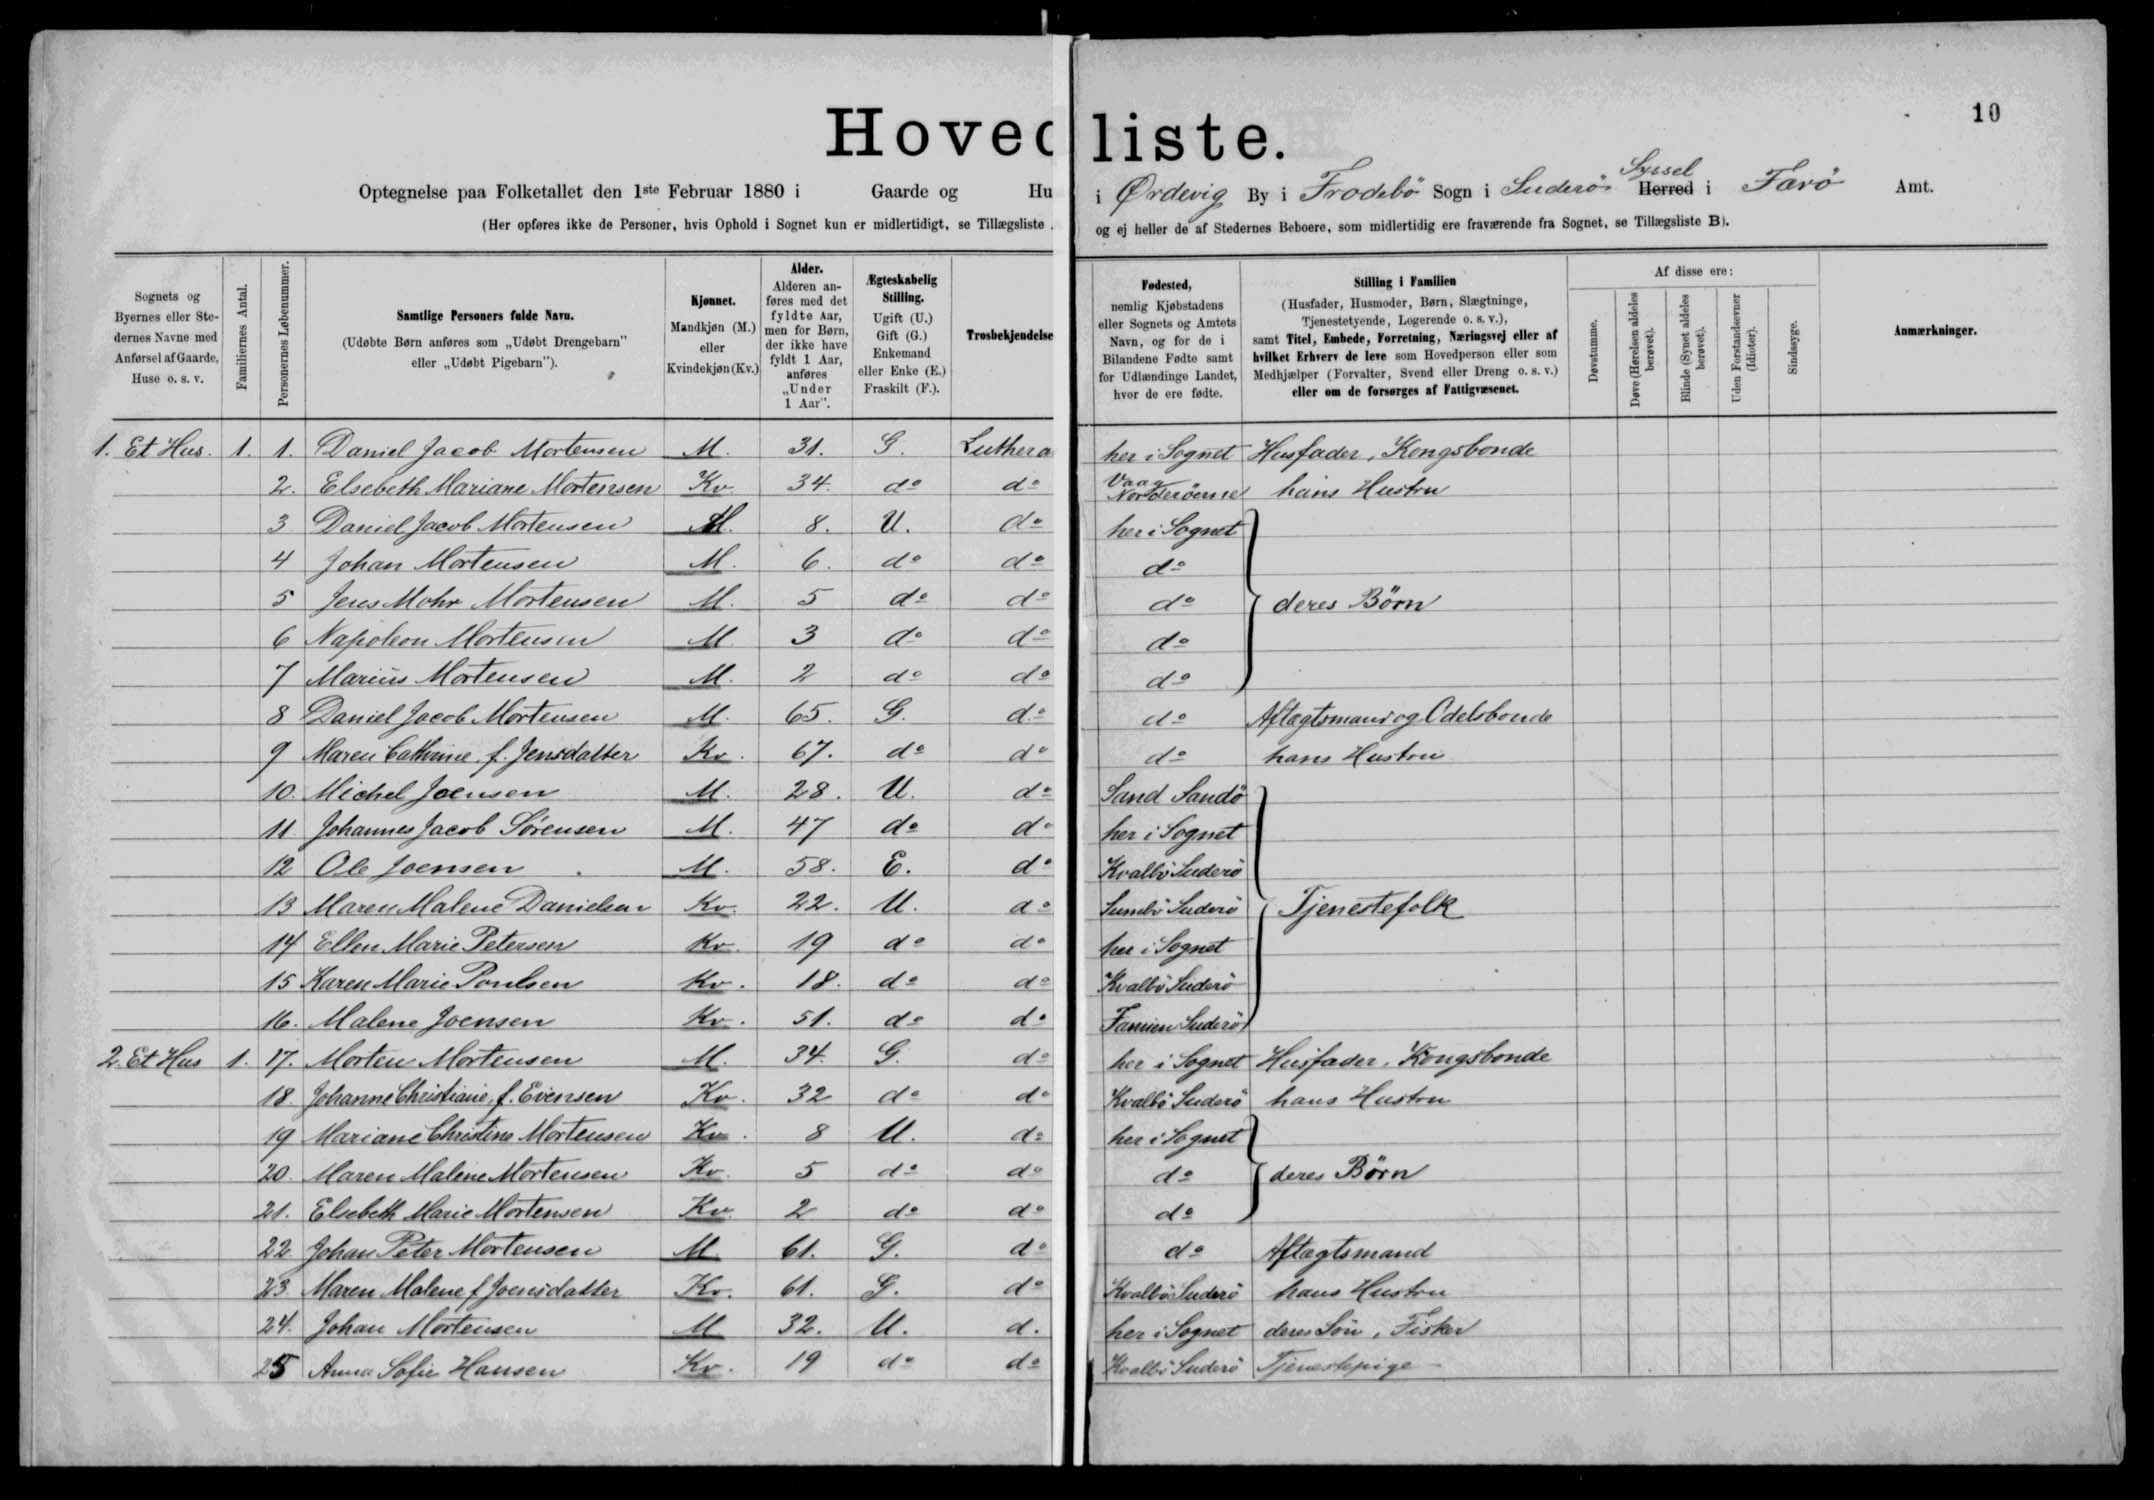 10
Hoved liste.
Optegnelse paa Folketallet den 1ste Februar 1880 i Gaarde og Hu i Ørdevig By i Frodebö Sogn i Suderös Syssel Herred i Færö Amt.
(Her opføres ikke de Personer, hvis Ophold i Sognet kun er midlertidigt, se Tillægsliste og ej heller de af Stedernes Beboere, som midlertidig ere fraværende fra Sognet, se Tillægsliste B).
Sognets og Byernes eller Stedernes Navne med Anførsel af Gaarde, Huse o. s. v.
Familiernes Antal.
Personernes Løbenummer.
Samtlige Personers fulde Navn.
(Udøbte Børn anføres som „Udøbt Drengebarn" eller „Udøbt Pigebarn").
Kjønnet.
Mandkjøn (M.) eller Kvindekjøn (Kv.)
Alder.
Alderen anføres med det fyldte Aar, men for Børn, der ikke have fyldt 1 Aar, anføres „Under 1 Aar".
Ægteskabelig Stilling.
Ugift (U.) Gift (G.) Enkemand eller Enke (E.) Fraskilt (F.).
Trosbekjendelse
Fødested,
nemlig Kjøbstadens eller Sognets og Amtets Navn, og for de i Bilandene Fødte samt for Udlændinge Landet, hvor de ere fødte.
Stilling i Familien
(Husfader, Husmoder, Børn, Slægtninge, Tjenestetyende, Logerende o. s. v.),
samt Titel, Embede, Forretning, Næringsvej eller af hvilket Erhverv de leve som Hovedperson eller som Medhjælper (Forvalter, Svend eller Dreng o. s. v.) eller om de forsørges af Fattigvæsenet.
Af disse ere:
Døvstumme.
Døve (Hørelsen aldeles berøvet).
Blinde (Synet aldeles berøvet).
Uden Forstandsevner (Idioter).
Sindssyge.
Anmærkninger.
1. Et Hus. 1. 1. Daniel Jacob Mortensen M. 31. G. Luthera her i Sognet Husfader, Kongsbonde
2. Elsebeth Mariane Mortensen Kv. 34. do do Vaag Norderöerne hans Hustru
3 Daniel Jacob Mortensen M. 8. U. do her i Sognet
4 Johan Mortensen M. 6. do do do
5 Jens Mohr Mortensen M. 5 do do do deres Börn
6 Napoleon Mortensen M. 3 do do do
7 Marius Mortensen M. 2 do do do
8 Daniel Jacob Mortensen M. 65. G. do do Aftægtsmand og Odelsbonde
9 Maren Cathrine, f. Jensdatter Kv. 67. do do do hans Hustru
10. Michel Joensen M. 28. U. do Sand Sandö
11. Johannes Jacob Sörensen M. 47 do do her i Sognet
12 Ole Joensen M. 58. E. do Kvalbö Suderö
13 Maren Malene Danielsen Kv. 22. U. do Sumbö Suderö Tjenestefolk
14 Ellen Marie Petersen Kv. 19 do do her i Sognet
15 Karen Marie Poulsen Kv. 18. do do Kvalbö Suderö
16. Malene Joensen Kv. 51. do do Famien Suderö
2. Et Hus 1. 17. Morten Mortensen M. 34. G. do her i Sognet Husfader, Kongsbonde
18. Johanne Christiane, f. Evensen Kv. 32 do do Kvalbö Suderö hans Hustru
19 Mariane Christine Mortensen Kv. 8 U. do her i Sognet
20. Maren Malene Mortensen Kv. 5 do do do deres Börn
21. Elsebeth Marie Mortensen Kv. 2 do do do
22 Johan Peter Mortensen M 61. G. do do Aftægtsmand
23 Maren Malene f. Joensdatter Kv. 61. G. do Kvalbö Suderö hans Hustru
24. Johan Mortensen M 32. U. d. her i Sognet deres Sön, Fisker
25 Anna Sofie Hansen Kv. 19 do do Kvalbö Suderö Tjenestepige